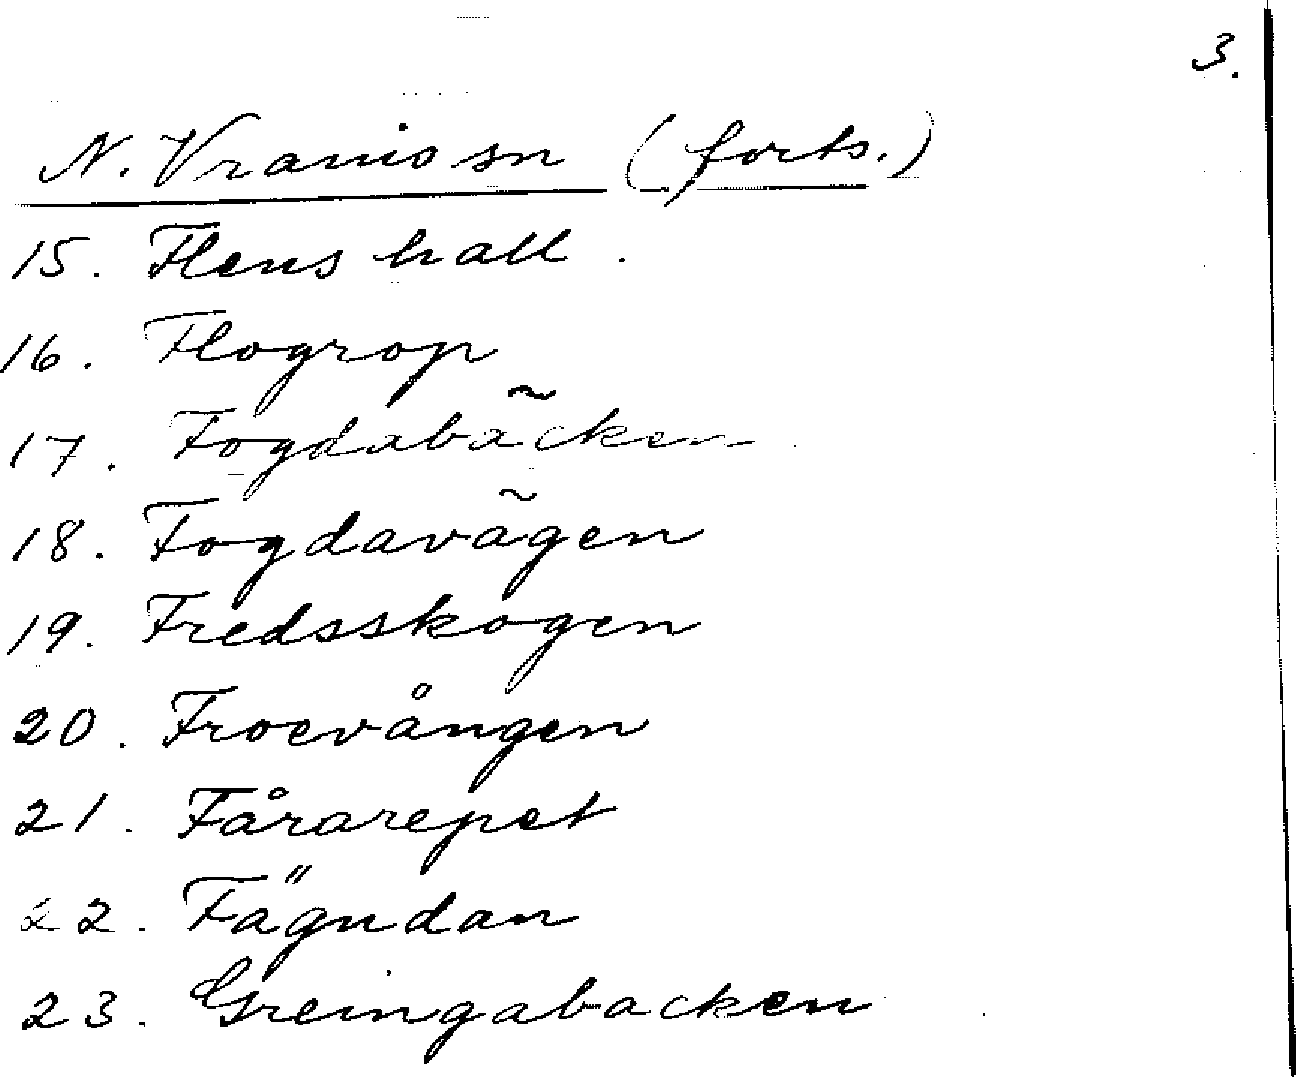 3.
N. Vramsn (forts.)
15. Flenshall.
16. Flogrop
17. Fogdabäcken
18. Fogdavägen
19. Fredsskogen
20. Froevången
21. Fårarepet
22. Fägndan
23. Greingabacken